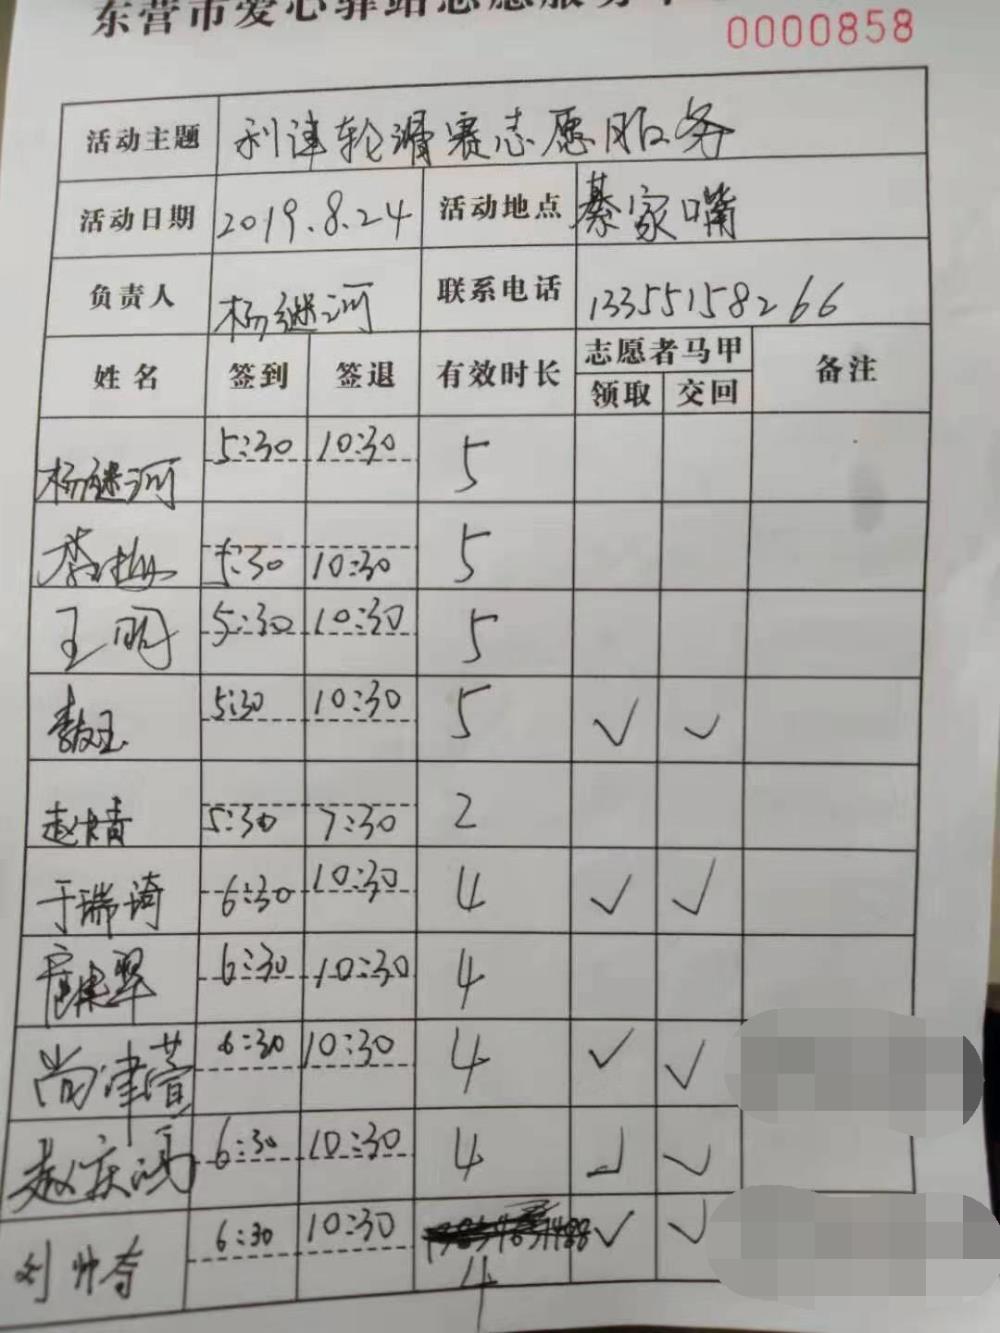 东营市爱心驿站志愿服务
0000858
活动主题 利津轮滑赛志愿服务
活动日期 2019.8.24 活动地点 綦家嘴
负责人 杨继河 联系电话 13355158266
姓名 签到 签退 有效时长 志愿者马甲 备注
领取 交回
杨继河 5:30 10:30 5
李梅 5:30 10:30 5
王明 5:30 10:30 5
5:30 10:30 5 ✓ ✓
赵婧 5:30 7:30 2
于瑞琦 6:30 10:30 4 ✓ ✓
6:30 10:30 4
尚津萱 6:30 10:30 4 ✓ ✓
赵庆鸿 6:30 10:30 4 ✓ ✓
刘帅奇 6:30 10:30 4 ✓ ✓